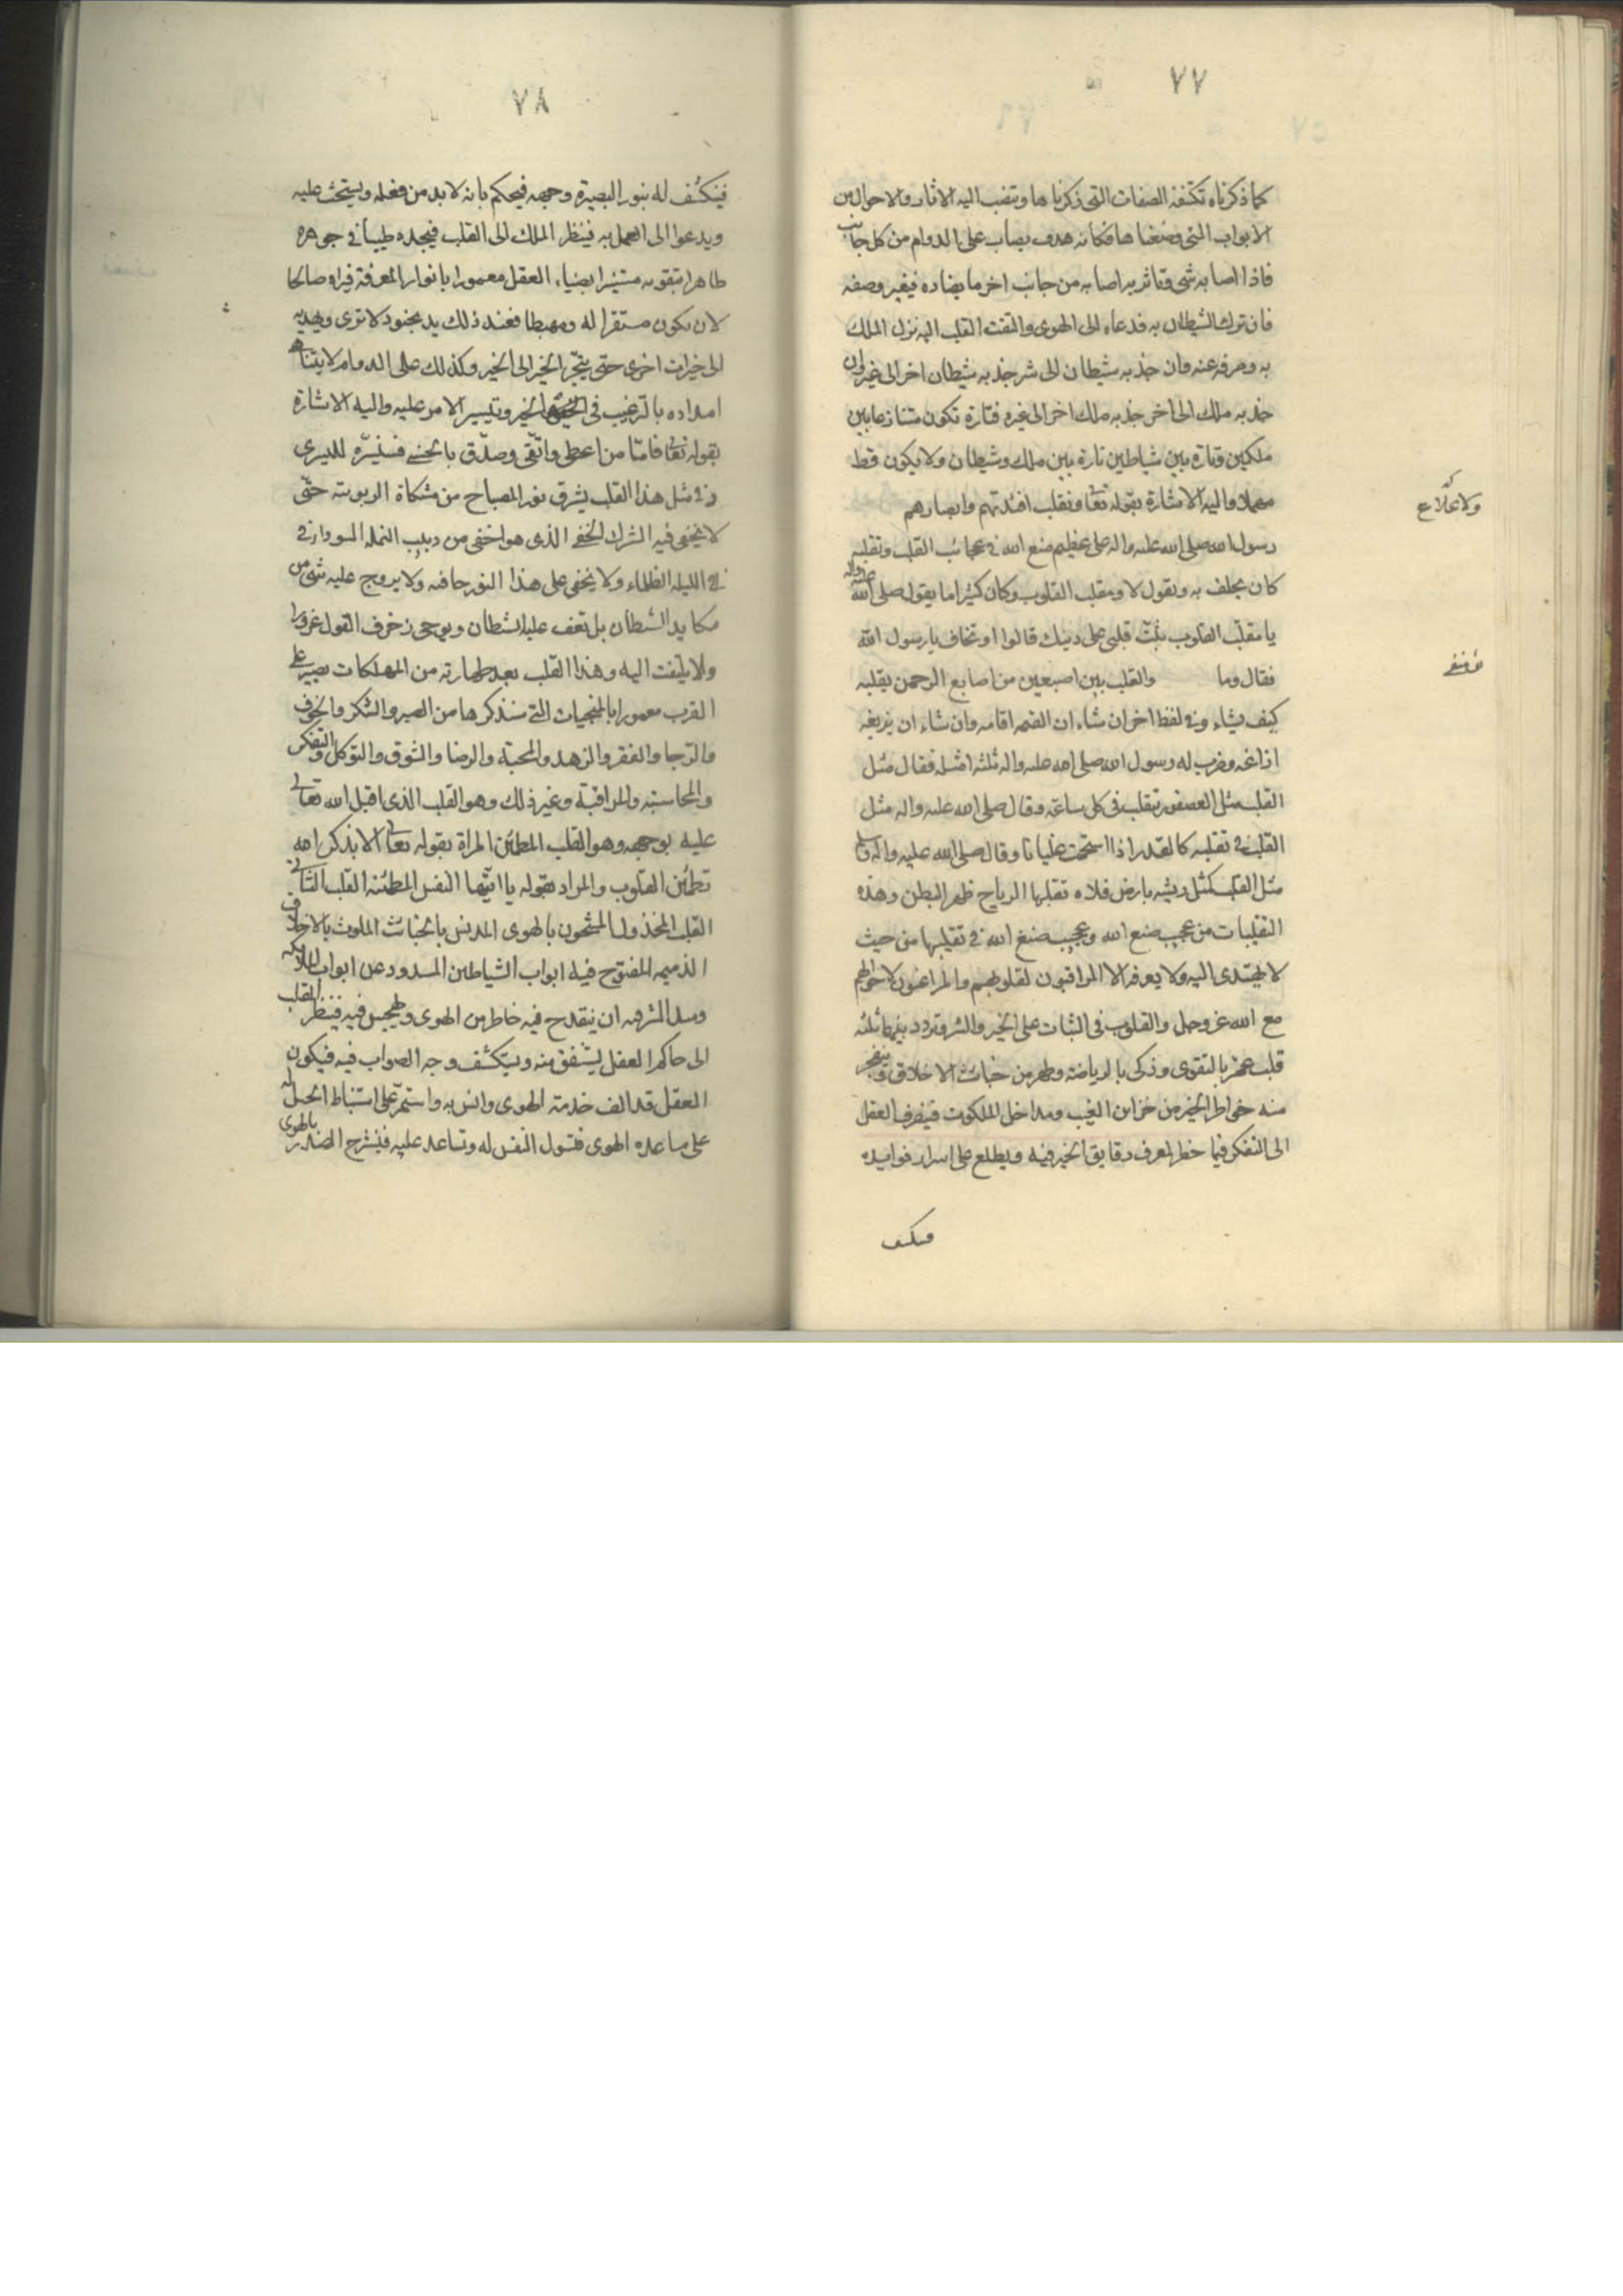 ٧٧
كما ذكرناه تكتنفه الصفات التى ذكرناها وتنصب اليه الاثار والاحوال من
الابواب التى وصفناها فكانه هدف يصاب على الدوام من كل جانب
فاذا اصابه شى وتاثر به اصابه من جانب اخر ما يضاده فيغير وصفه
فان نزل الشيطان به فدعاه الى الهوى والتفت القلب اليه نزل الملك
به وصرفه عنه وان جذبه شيطان الى شر جذبه شيطان اخر الى غيره وان
جذبه ملك الى خر جذبه ملك اخر الى غيره فتارة تكون متنازعا بين
ملكين وتارة بين شياطين تارة بين ملك وشيطان ولا يكون قط
مهملا واليه الاشارة بقوله تعا ونقلب افئدتهم وابصارهم
رسول الله صلى الله عليه واله على عظيم صنع الله فى عجائب القلب وتقلبه
كان يحلف به ويقول لا ومقلب القلوب وكان كثيرا ما يقول صلى الله عليه واله
يا مقلب القلوب ثبت قلبى على دينك قالوا او تخاف يا رسول الله
فقال وما والقلب بين اصبعين من اصابع الرحمن يقلبه
كيف يشاء وفى لفظ اخر ان شاء ان القيمه اقامه وان شاء ان يزيغه
ازاغه وضرب له رسول الله صلى الله عليه واله ثلثه امثله فقال مثل
القلب مثل العصفور تتقلب فى كل ساعة وقال صلى الله عليه واله مثل
القلب فى تقلبه كالقدر اذا استجمت غليانا وقال صلى الله عليه واله
مثل القلب كمثل ريشه بارض فلاه تقلبها الرياح ظهر البطن وهذه
التقلبات من عجيب صنع الله وعجيب صنع الله فى تقلبها من حيث
لا يهتدى اليه ولا يعرفه الا المراقبون لقلوبهم والمراعون لاحوالهم
مع الله عز وجل والقلوب فى الثبات على الخير والشر وتردد بينهما ثلثه
قلب عمر بالتقوى وزكى بالرياضة وطهر من خباث الاخلاق وينفجر
منه خواطر الخير من خزاين الغيب ومداخل الملكوت فينصرف العقل
الى التفكر فيما خطر لعرف دقايق الخير فيه ويطلع على اسرار فوايده
٧٨
فينكشف له بنور البصيرة وجهه فيحكم بانه لا بد من فعله ويستحث عليه
ويدعوا الى العمل به فينظر الملك الى القلب فيجده طيبا فى جوهره
طاهرا بتقويه مستنيرا بضياء العقل معمورا بانوار المعرفة فيراه صالحا
لان يكون مستقرا له ومهبطا فعند ذلك يمد بجنود لا ترى ويهديه
الى خيرات اخرى حتى ينجر الخير الى الخير وكذلك على الدوام لا يتناهى
امداده بالترغيب فى الخير وتيسير الامر عليه واليه الاشارة
بقوله تعا فاما من اعطى واتقى وصدق بالحسنى فسنيسره لليسرى
وفى مثل هذا القلب يشرق نور المصباح من مشكاة الربوبيه حتى
لا يخفى فيه الشرك الخفى الذى هو اخفى من دبيب النمله السوداء فى
فى الليله الظلماء ولا يخفى على هذا النور خافيه ولا يروج عليه شى من
مكايد الشيطان بل تقف عليه الشيطان ويوحى زخرف القول غرورا
ولا يلتفت اليه وهذا القلب بعد طهارته من المهلكات يصير على
القرب معمورا بالمنجيات التى سنذكرها من الصبر والشكر والخوف
والرجا والفقر والزهد والمحبة والرضا والشوق والتوكل والتفكر
والمحاسبه والمراقبة وغير ذلك وهو القلب الذى اقبل الله تعالى
عليه بوجهه وهو القلب المطمئن المراة بقوله تعالى الا بذكر الله
تطمئن القلوب والمراد بقوله يا ايتها النفس المطمئنه القلب الثانى
القلب المخذول المشحون بالهوى المدنس بالخبائث الملوث بالاخلاق
الذميمه المفتوح فيه ابواب الشياطين المسدود عن ابواب الملائكه
ومبدا الشر فيه ان ينقدح فيه خاطر من الهوى ويهجس فيه فينظر القلب
الى حاكم العقل ليشفق منه ويستكشف وجه الصواب فيه فيكون
العقل قد الف خدمة الهوى وانس به واستمر على استنباط الحيل له
على مساعده الهوى فتسول النفس له وتساعد عليه فينشرح الصدر بالهوى